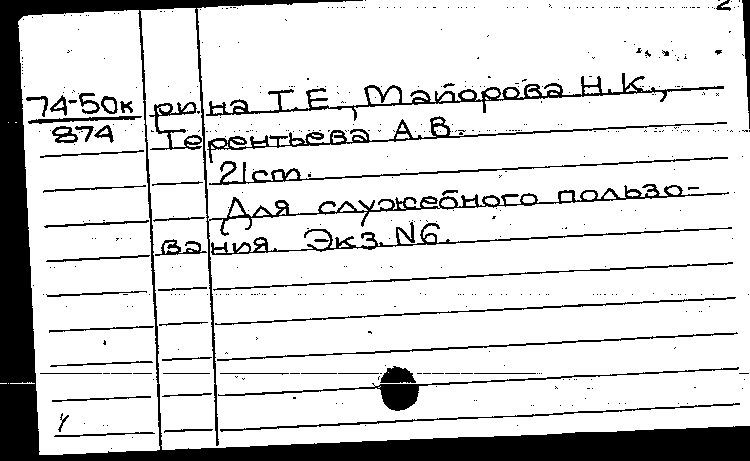 2
74-50к рина Т.Е., Майорова Н.К.,
874
Терентьева А.В.
21 cm.
Для служебного пользо-
вания. Экз. N6.